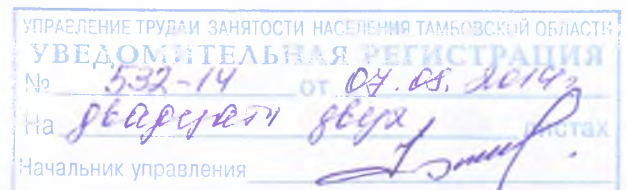 УПРАВЛЕНИЕ ТРУДА И ЗАНЯТОСТИ НАСЕЛЕНИЯ ТАМБОВСКОЙ ОБЛАСТИ
УВЕДОМИТЕЛЬНАЯ РЕГИСТРАЦИЯ
№ 532-14 от 07.05.2014г
На двадцати двух листах
Начальник управления